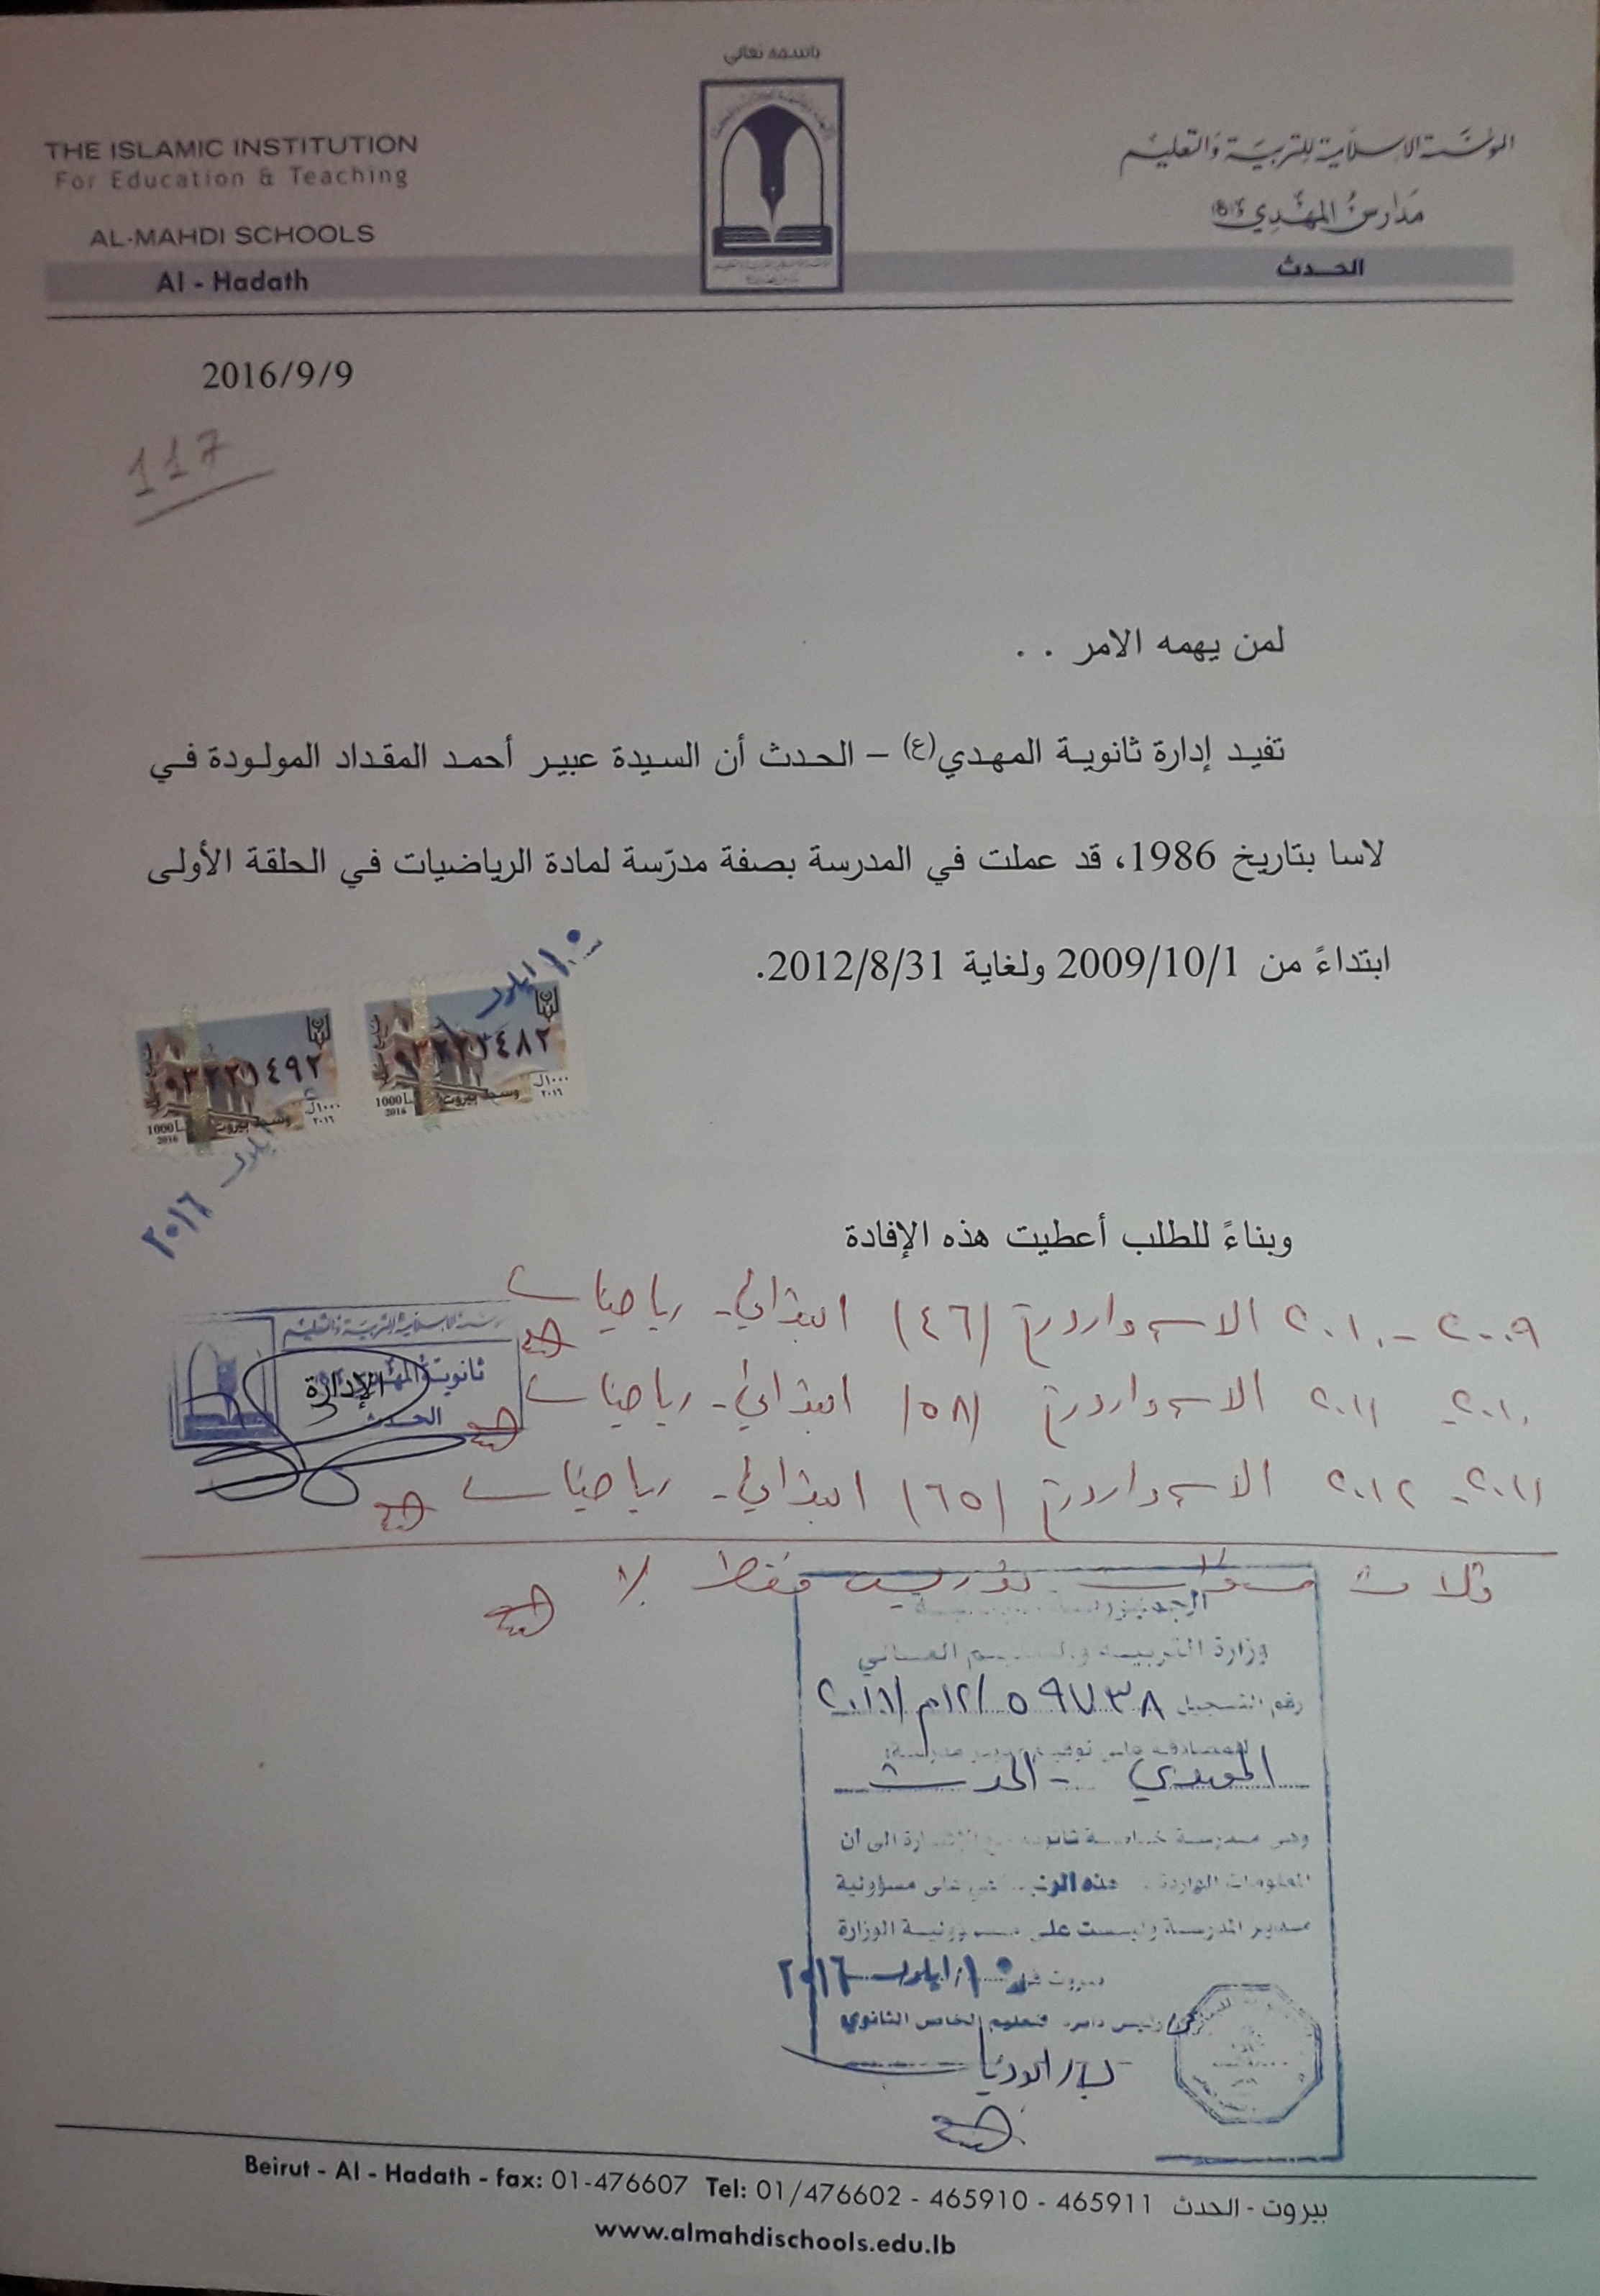 باسمه تعالى
THE ISLAMIC INSTITUTION
For Education & Teaching
AL-MAHDI SCHOOLS
Al - Hadath
المؤسسة الإسلامية للتربية والتعليم
مدارس المهدي (ع)
الحدث
2016/9/9
117
لمن يهمه الامر . .
تفيد إدارة ثانوية المهدي(ع) – الحدث أن السيدة عبير أحمد المقداد المولودة في
لاسا بتاريخ 1986، قد عملت في المدرسة بصفة مدرّسة لمادة الرياضيات في الحلقة الأولى
ابتداءً من 2009/10/1 ولغاية 2012/8/31.
١٠ ايلول
٠٣٢٢١٤٩٢
١٠٠٠ل
٢٠١٦
1000L
2016
وسط بيروت
١٠٠٠ل
٢٠١٦
1000L
2016
وسط بيروت
ايلول ٢٠١٦
وبناءً للطلب أعطيت هذه الإفادة
٢٠٠٩ - ٢٠١٠ الاسم وارد رقم (٤٦) ابتدائي - رياضيات
٢٠١٠ - ٢٠١١ الاسم وارد رقم (٥٨) ابتدائي - رياضيات
٢٠١١ - ٢٠١٢ الاسم وارد رقم (٦٥) ابتدائي - رياضيات
ثانوية المهدي
الإدارة
الحدث
ثلاث سنوات تدريس فقط لا
وزارة التربية والتعليم العالي
رقم التسجيل ٥٩٧٣٨/١٢م/٢٠١٦
للمصادقة على توقيع مدير مدرسة:
المهدي - الحدث
وهي مدرسة خاصة ثانوية مع الإشارة الى ان
المعلومات الواردة هذه الوثيقة هي على مسؤولية
مدير المدرسة وليست على مسؤولية الوزارة
بيروت في ١٠ ايلول ٢٠١٦
رئيس دائرة التعليم الخاص الثانوي
Beirut - Al - Hadath - fax: 01-476607 Tel: 01/476602 - 465910 - 465911 بيروت - الحدث
www.almahdischools.edu.lb